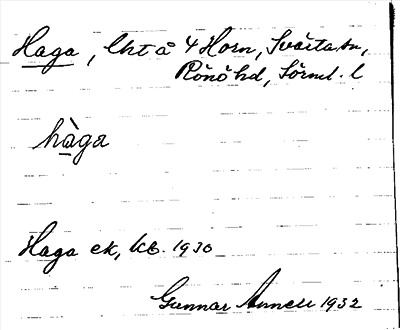 Haga, lht å 4 Horn, Svärta sn,
Rönö hd, Sörml. l
hàga
Haga ek, kb. 1930
Gunnar 1932